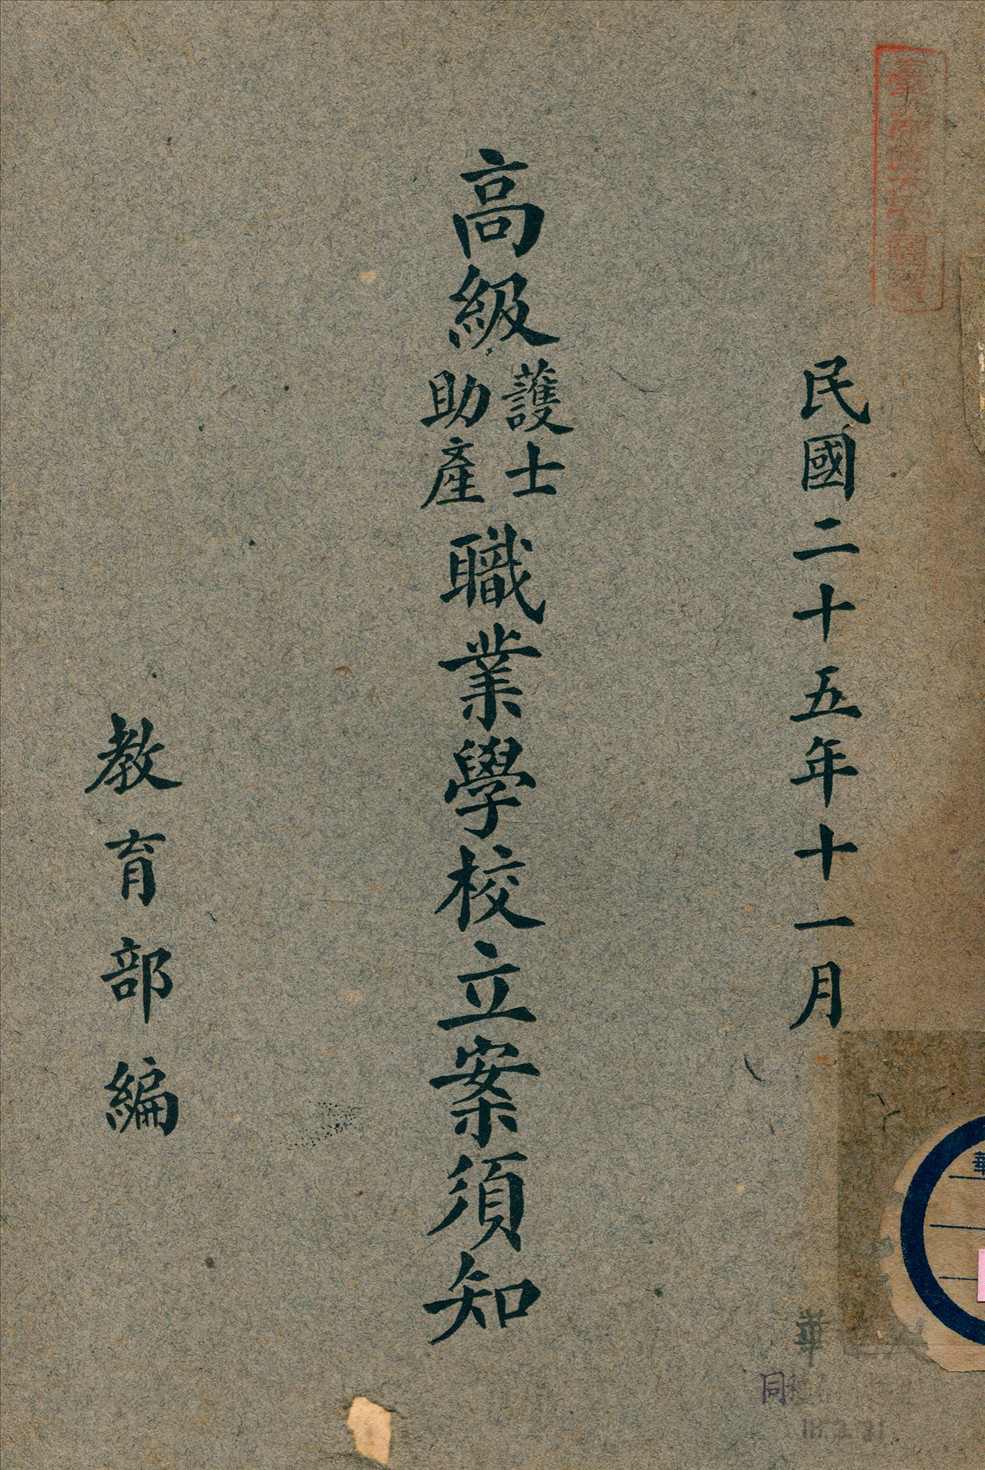 民國二十五年十一月
高級護士助產職業學校立案須知
教育部編
華
同